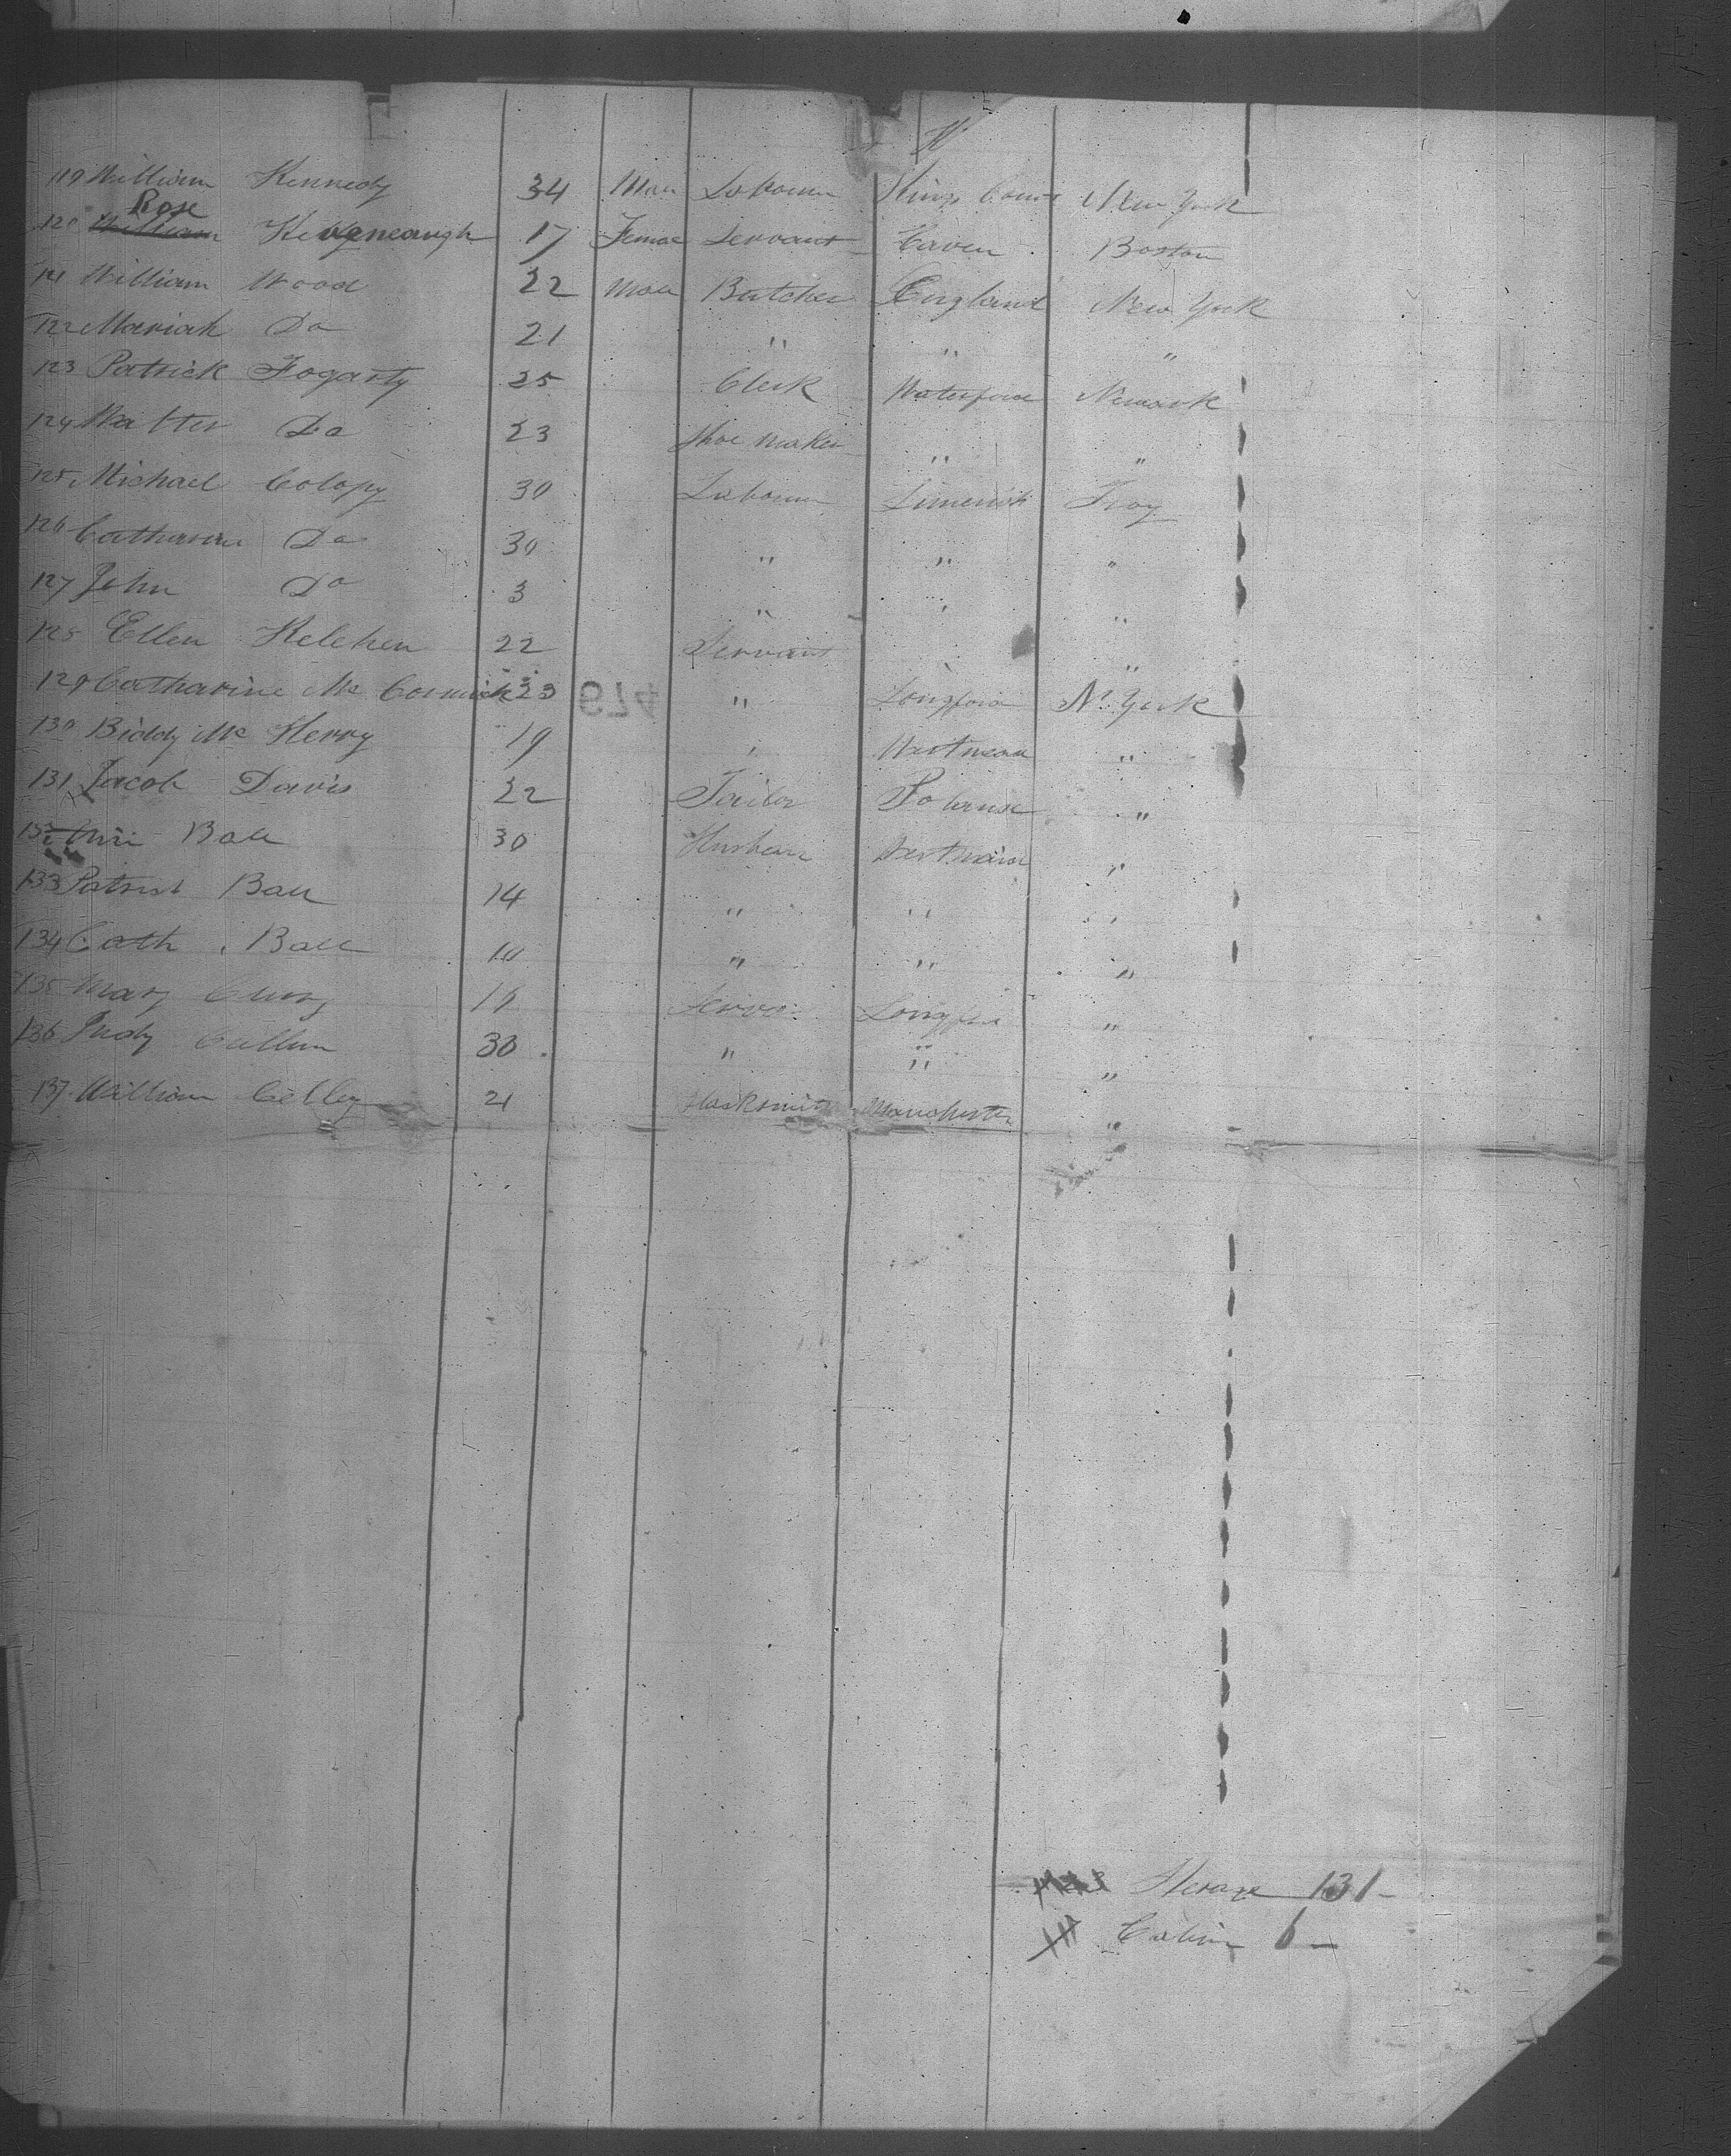 119 William Kennedy 34 Man Labourer Kings Coun New York
Rose
120 William Kevaneaugh 17 Female Servant Caven Boston
121 William Wood 22 Man Butcher England New York
122 Mariah Do 21 " " "
123 Patrick Fogarty 25 Clerk Waterford Newark
124 Walter Do 23 Shoe Maker " "
125 Michael Colopy 30 Labourer Limerick Troy
126 Catharine Do 30 " " "
127 John Do 3 " " "
128 Ellen Kelehen 22 Servant "
129 Catharine Mc Cormick 23 " Longford N. York
130 Biddy Mc Henry 19 " Westmean "
131 Jacob Davis 22 Tailor "
Ball 30 "
133 Patrick Ball 14 " " "
134 Cath Ball 10 " " "
135 Mary Longford "
136 Judy Cullen 30 " " "
137 William 21 Blacksmith Manchester "
Sterage 131-
Cabin 6-